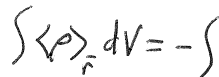 ∫⟨ρ⟩_r̄ dV = -∫